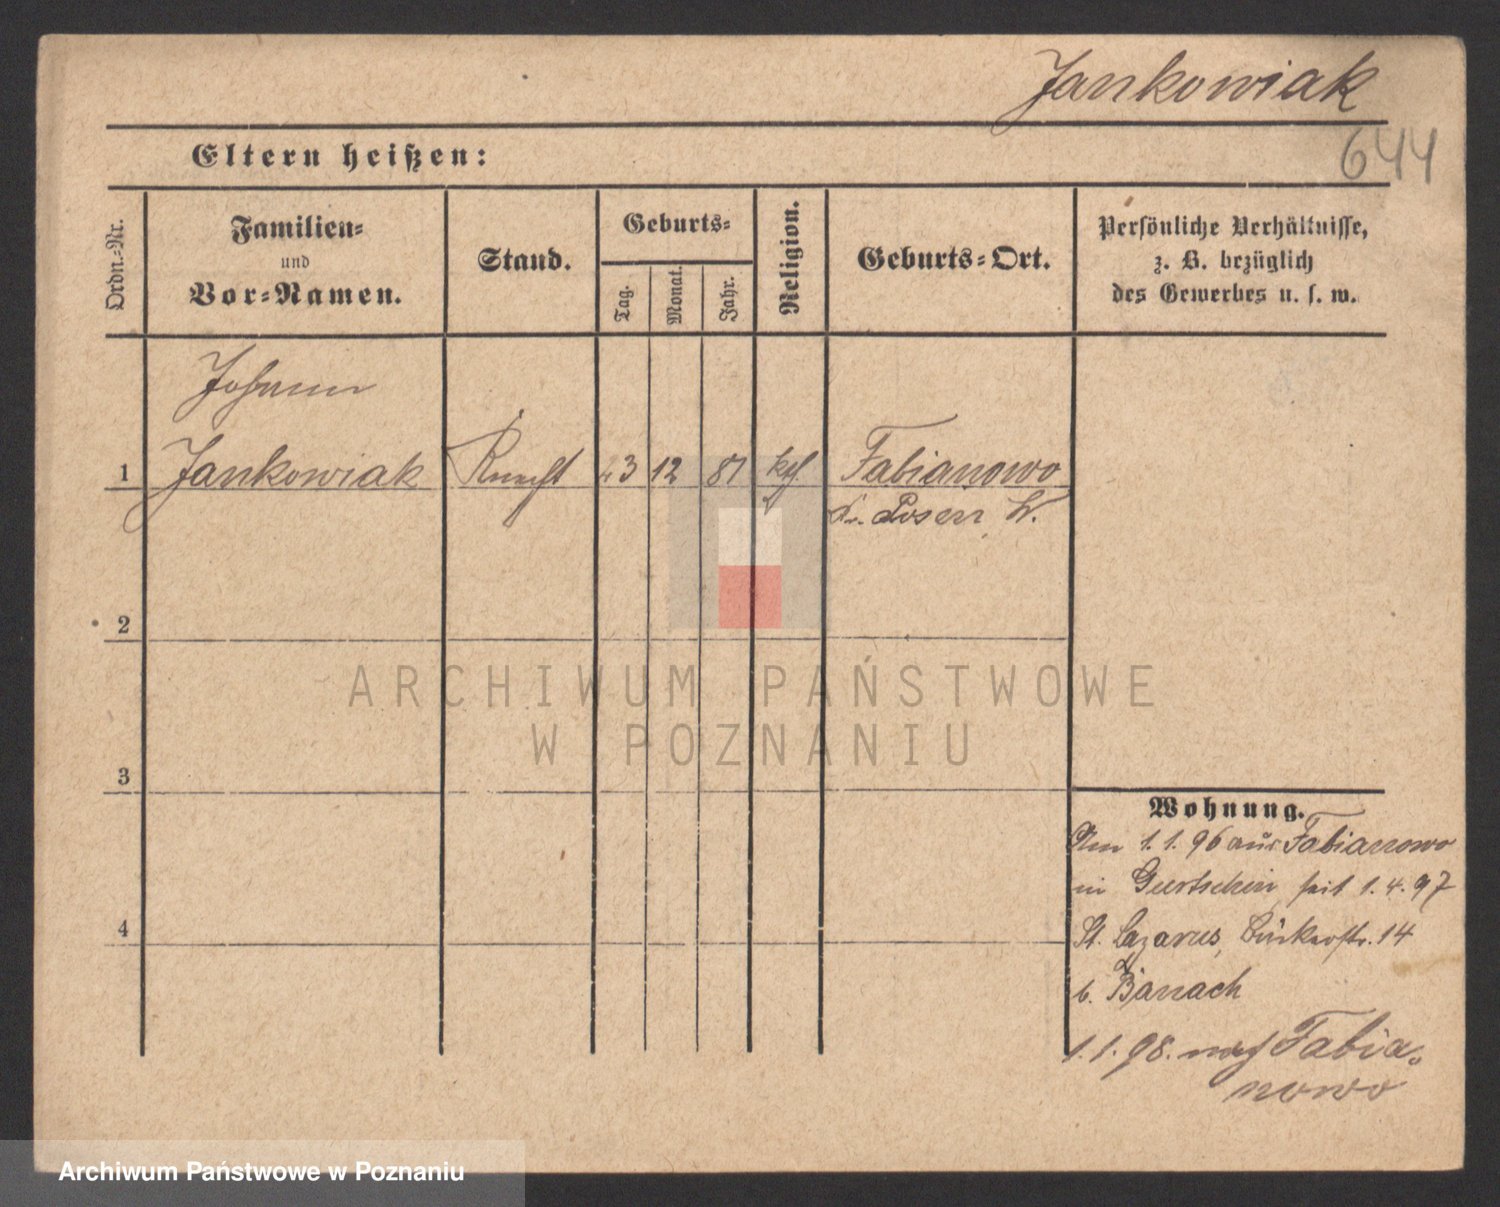 Jankowiak
644
Eltern heißen:
Ordn.-Nr.
Familien-
und
Vor-Namen.
Stand.
Geburts-
Tag.
Monat.
Jahr.
Religion.
Geburts-Ort.
Persönliche Verhältnisse,
z. B. bezüglich
des Gewerbes u. s. w.
Johann
1 Jankowiak Knecht 23 12 81 kath Fabianowo
Kr. Posen W.
2
3
4
Wohnung.
Am 1.1.96 aus Fabianowo
in Gurtschin, seit 1.4.97
St. Lazarus, 14
b. Banach
1.1.98. nach Fabia-
nowo
ARCHIWUM PAŃSTWOWE
W POZNANIU
Archiwum Państwowe w Poznaniu